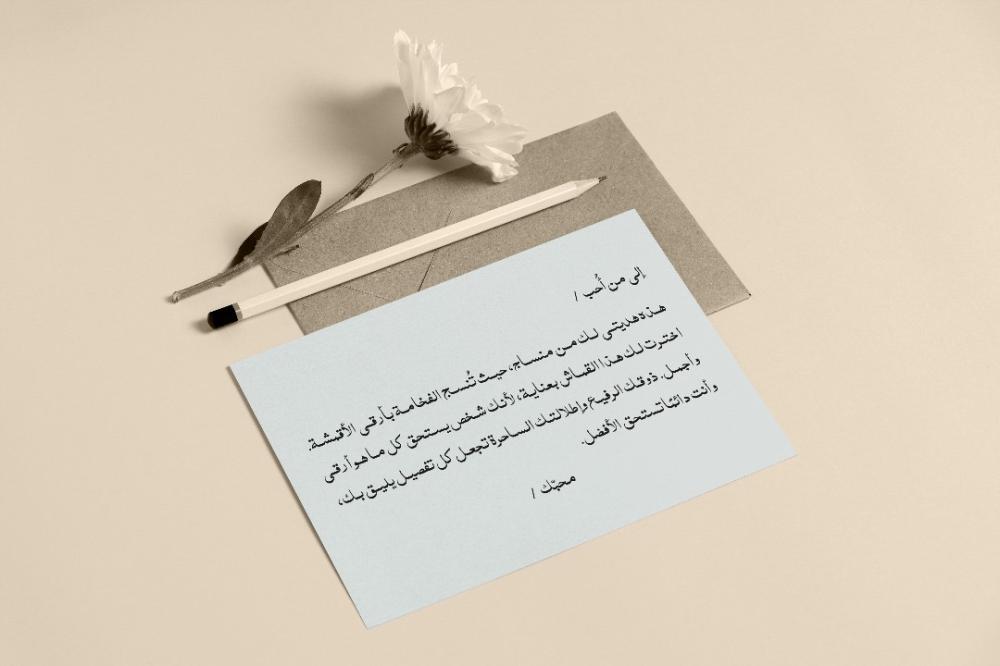 إلى من أُحب /
هذه هديتي لك من منساج، حيث تُنسج الفخامة بأرقى الأقمشة.
اخترت لك هذا القماش بعناية، لأنك شخص يستحق كل ما هو أرقى
وأجمل. ذوقك الرفيع وإطلالتك الساحرة تجعل كل تفصيل يليق بك،
وأنت دائمًا تستحق الأفضل.
محبّك /